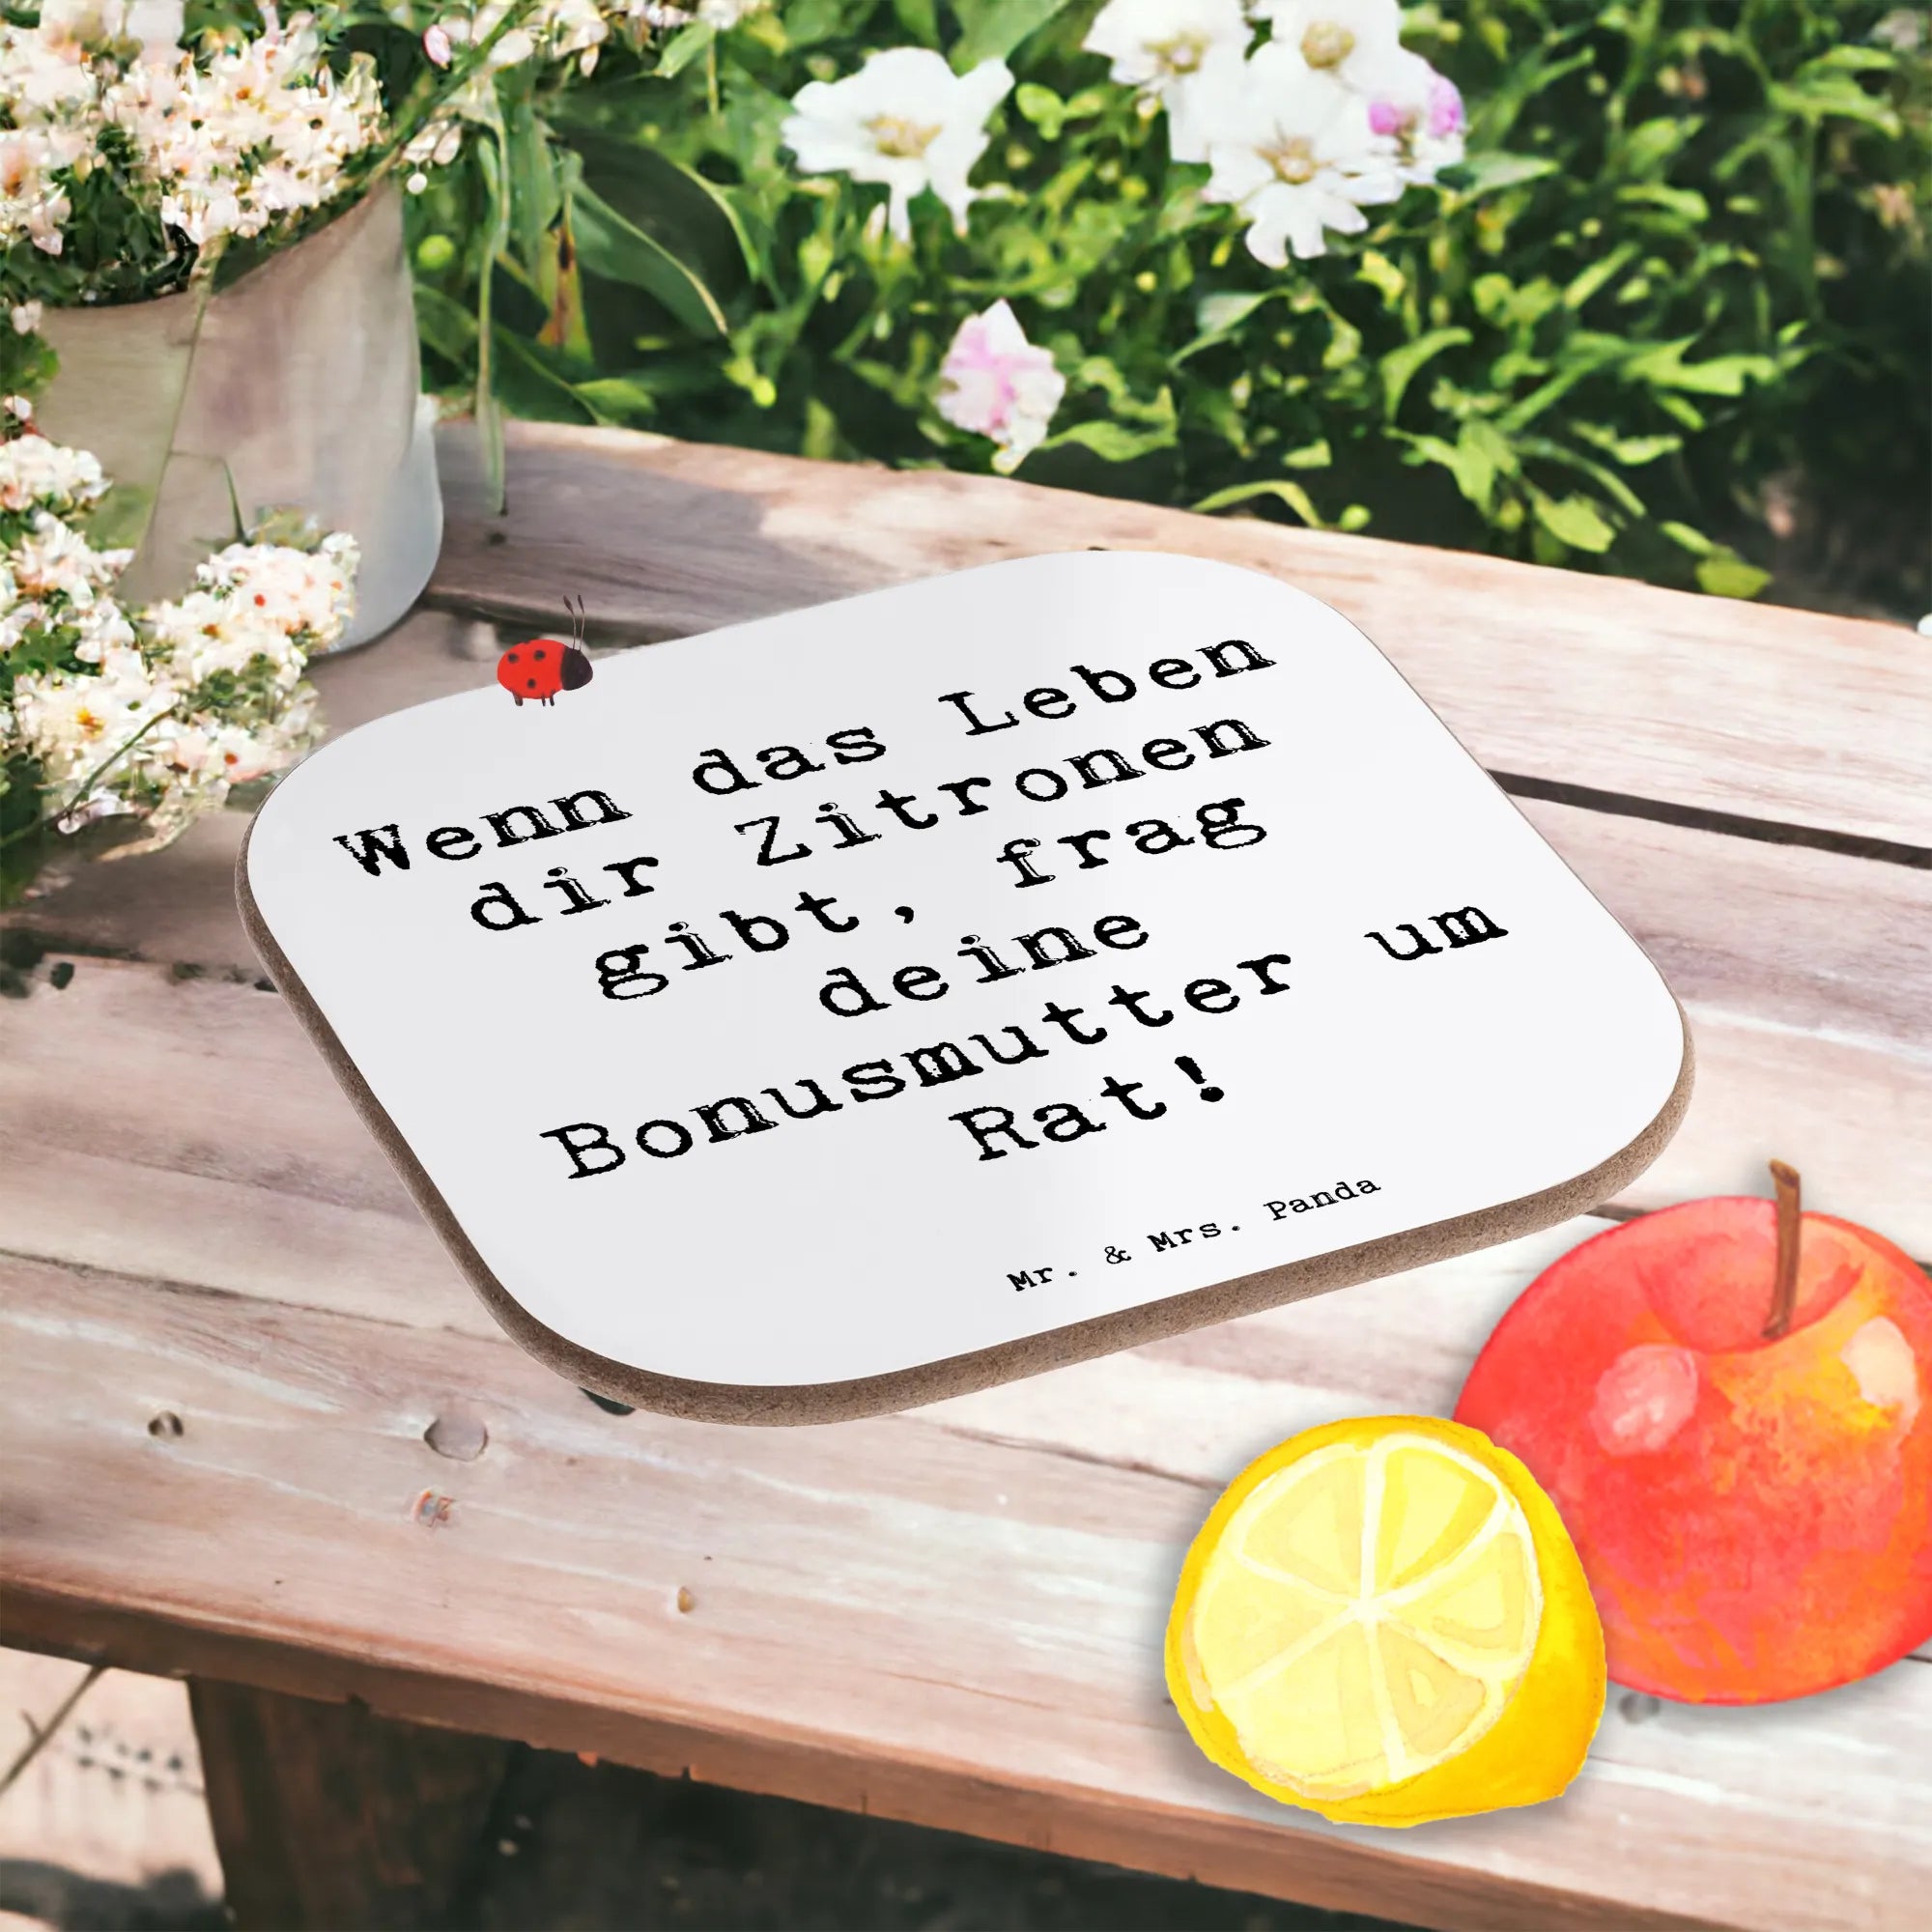 Wenn das Leben
dir Zitronen
gibt, frag
deine
Bonusmutter um
Rat!
Mr. & Mrs. Panda